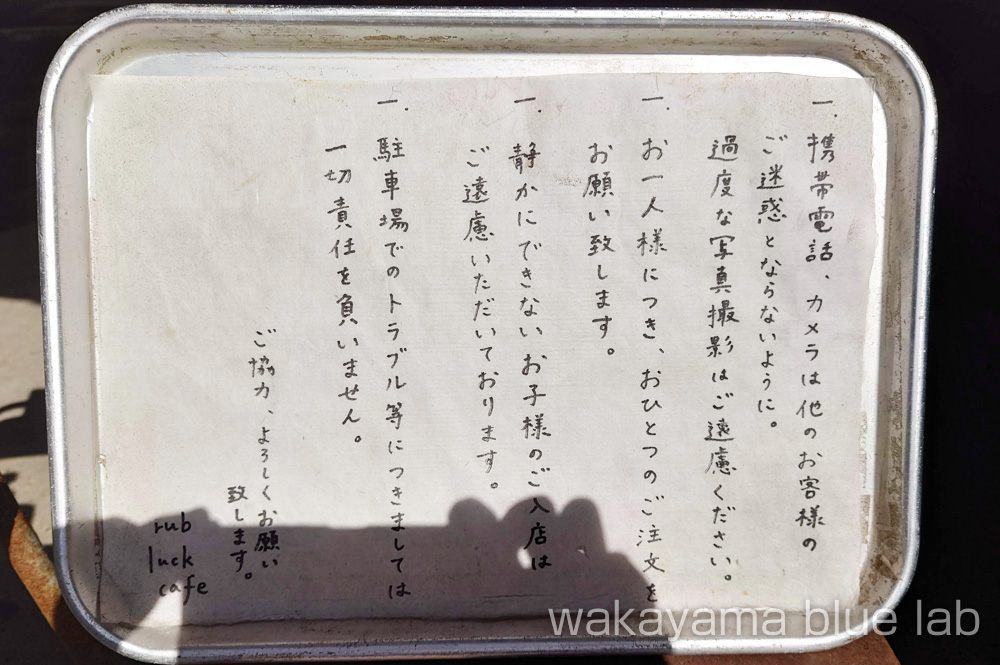 一．携帯電話、カメラは他のお客様の
ご迷惑とならないように。
過度な写真撮影はご遠慮ください。
一．お一人様につき、おひとつのご注文を
お願い致します。
一．静かにできないお子様のご入店は
ご遠慮いただいております。
一．駐車場でのトラブル等につきましては
一切責任を負いません。
ご協力、よろしくお願い
致します。
rub
luck
cafe
wakayama blue lab